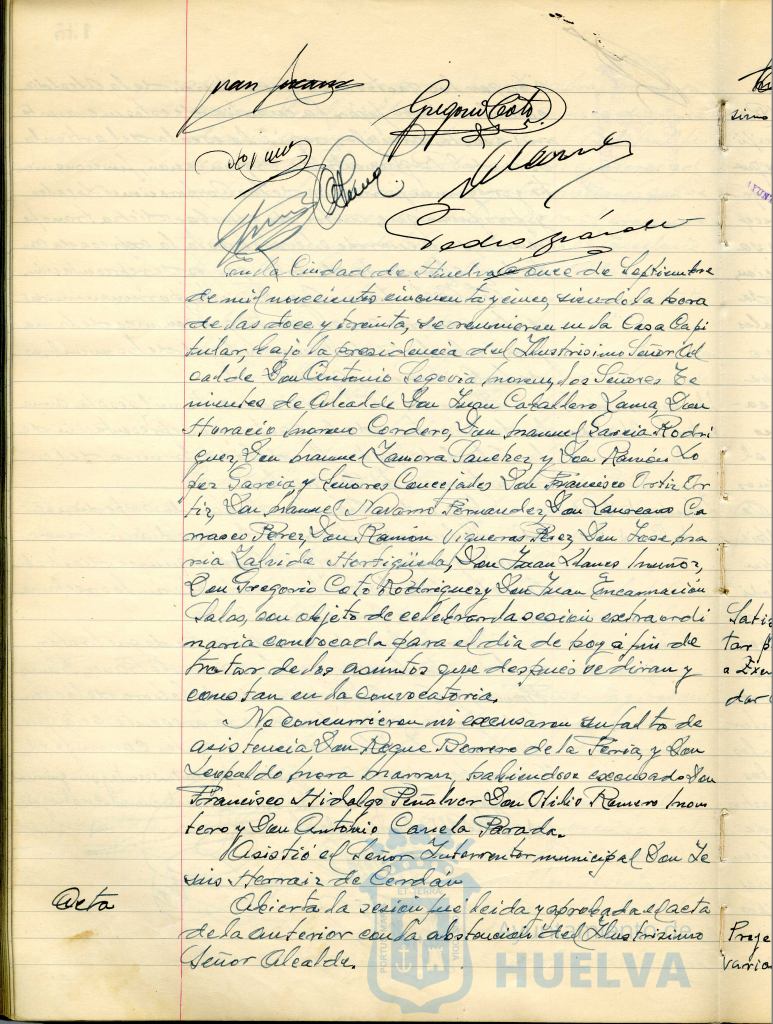 Gregorio Coto
En la Ciudad de Huelva a once de Septiembre
de mil novecientos cincuenta y cinco, siendo la hora
de las doce y treinta, se reunieron en la Casa Capi
tular, bajo la presidencia del Ilustrisimo Señor Al
calde Don Antonio Segovia Moreno, los Señores Te
nientes de Alcalde Don Juan Caballero Don
Horacio Moreno Cordero, Don Manuel Garcia Rodri
guez, Don Manuel Zamora Sanchez, y Don Ramón Lo
pez Garcia y Señores Concejales Don Francisco Ortiz Or
tiz, Don Manuel Navarro Fernandez, Don Laureano Ca
rrasco Perez, Don Ramon Vigueras Perez, Don Jose Ma
ria Hortigüela, Don Juan Llanes Muñoz,
Don Gregorio Coto Rodriguez y Don Juan Encarnación
Salas, con objeto de celebrar la sesion extraordi
naria convocada para el dia de hoy á fin de
tratar de los asuntos que despues se diran y
constan en la convocatoria.
No concurrieron ni excusaron su falta de
asistencia Don Roque Borrero de la Feria, y Don
Leopoldo Mora habiendose excusado Don
Francisco Hidalgo Peñalver Don Otilio Romero Mon
tero y Don Antonio Canela Parada.
Asistió el Señor Interventor municipal Don Je
sus Herraiz de Cerdán
Acta
Abierta la sesion fué leida y aprobada el acta
de la anterior con la abstencion del Ilustrisimo
Señor Alcalde.
Ayuntamiento de
HUELVA
simo
tar
a
dar
Proje
vario